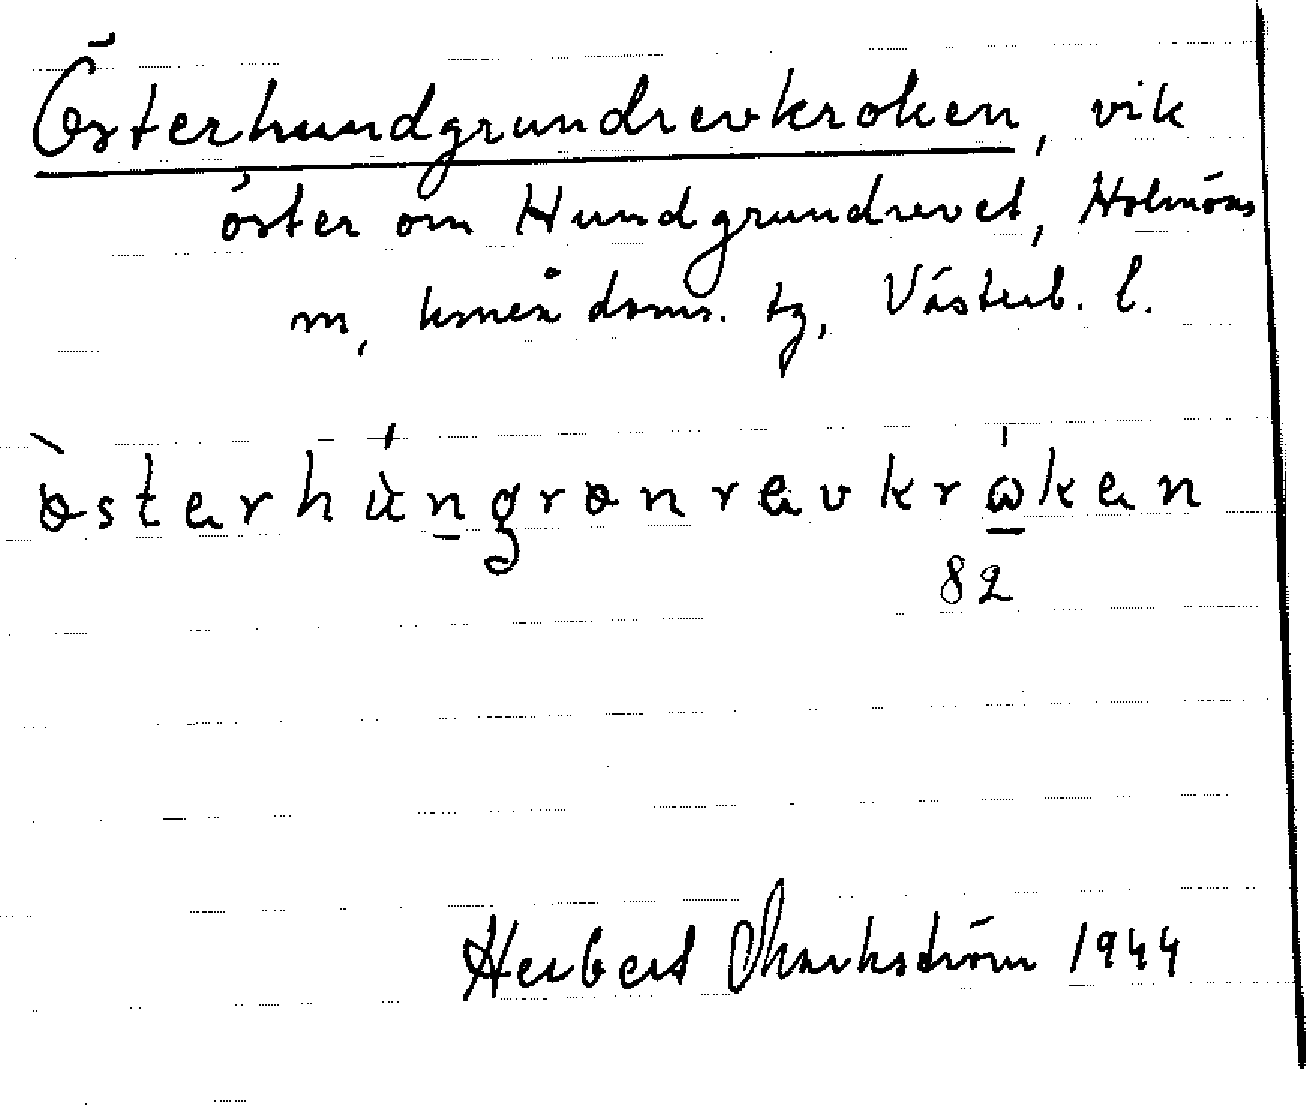 Österhundgrundrevkroken, vik
öster om Hundgrundrevet, Holmöns
m, Umeå doms. tg, Västerb. l.
österhùngrønrevkrωken
82
Herbert Markström 1944